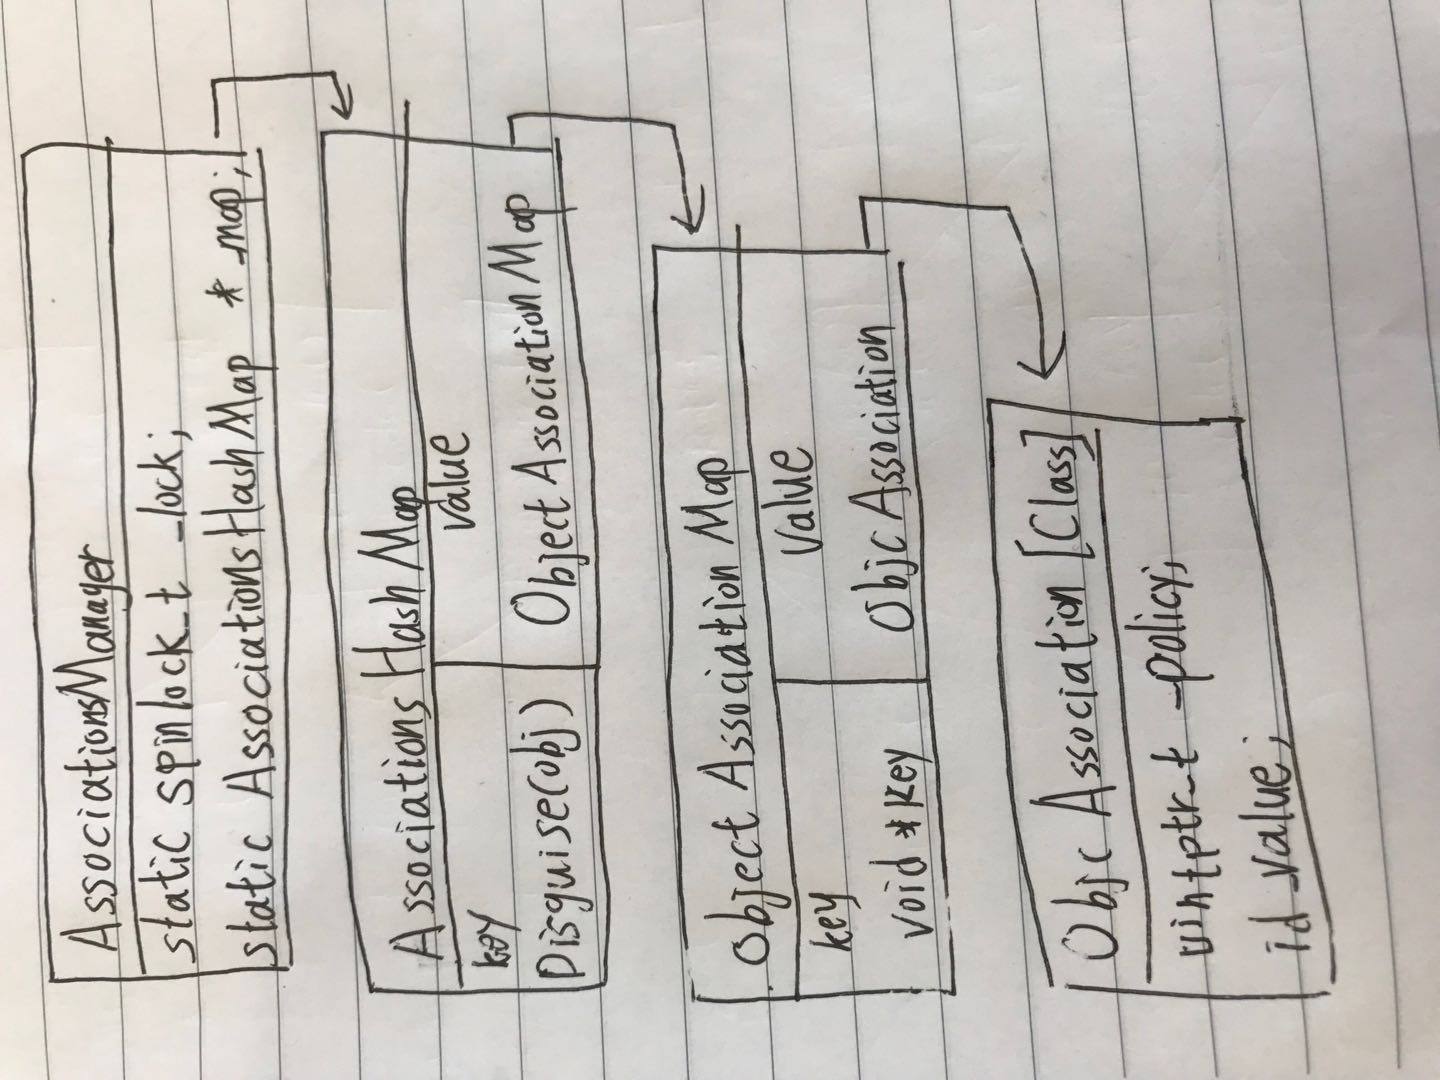 AssociationsManager
static spinlock_t _lock;
static AssociationsHashMap * _map;
Associations Hash Map
key
value
Disguise(obj)
Object Association Map
Object Association Map
key
Value
void *key
Objc Association
Objc Association [Class]
uintptr_t _policy;
id _value;